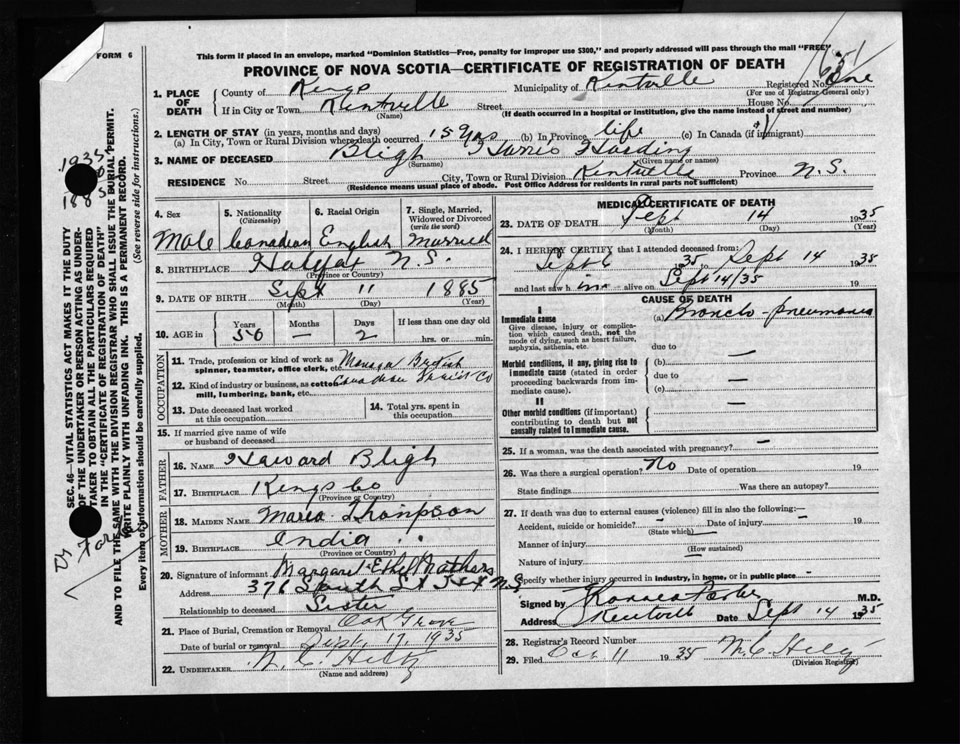 FORM 6
This form if placed in an envelope, marked "Dominion Statistics—Free, penalty for improper use $300," and properly addressed will pass through the mail "FREE"
PROVINCE OF NOVA SCOTIA—CERTIFICATE OF REGISTRATION OF DEATH
1. PLACE OF DEATH
County of Kings Municipality of Kentville Registered No. One
(For use of Registrar General only)
If in City or Town Kentville Street House No.
(Name) (If death occurred in a hospital or institution, give the name instead of street and number)
2. LENGTH OF STAY (in years, months and days)
(a) In City, Town or Rural Division where death occurred 15 yrs (b) In Province life (c) In Canada (if immigrant)
3. NAME OF DECEASED Bligh Harris Harding
(Surname) (Given name or names)
RESIDENCE No. Street City, Town or Rural Division Kentville Province N.S.
(Residence means usual place of abode. Post Office Address for residents in rural parts not sufficient)
4. Sex Male
5. Nationality (Citizenship) Canadian
6. Racial Origin English
7. Single, Married, Widowed or Divorced (write the word) Married
8. BIRTHPLACE Halifax N.S.
(Province or Country)
9. DATE OF BIRTH Sept 11 1885
(Month) (Day) (Year)
10. AGE in Years 50 Months — Days 2 If less than one day old hrs. or min.
OCCUPATION
11. Trade, profession or kind of work as spinner, teamster, office clerk, etc. British
12. Kind of industry or business, as cotton mill, lumbering, bank, etc. Canadian Co
13. Date deceased last worked at this occupation
14. Total yrs. spent in this occupation
15. If married give name of wife or husband of deceased
FATHER
16. NAME Howard Bligh
17. BIRTHPLACE Kings Co
(Province or Country)
MOTHER
18. MAIDEN NAME Maria Thompson
19. BIRTHPLACE India
(Province or Country)
20. Signature of informant Margaret Ethel Mathers
Address 376 South St Hfx N.S.
Relationship to deceased Sister
21. Place of Burial, Cremation or Removal Oak Grove
Date of burial or removal Sept. 17 1935
22. UNDERTAKER
(Name and address)
MEDICAL CERTIFICATE OF DEATH
23. DATE OF DEATH Sept 14 1935
(Month) (Day) (Year)
24. I HEREBY CERTIFY that I attended deceased from:
Sept 6 1935 to Sept 14 1935
and last saw h im alive on Sept 14/35 19
CAUSE OF DEATH
I
Immediate cause (a) Broncho-pneumonia
Give disease, injury or complication which caused death, not the mode of dying, such as heart failure, asphyxia, asthenia, etc.
due to —
Morbid conditions, if any, giving rise to immediate cause (stated in order proceeding backwards from immediate cause).
(b)
due to —
(c)
II
Other morbid conditions (if important) contributing to death but not causally related to immediate cause. —
25. If a woman, was the death associated with pregnancy? —
26. Was there a surgical operation? No Date of operation 19
State findings Was there an autopsy?
27. If death was due to external causes (violence) fill in also the following:—
Accident, suicide or homicide? Date of injury 19
(State which)
Manner of injury
(How sustained)
Nature of injury
Specify whether injury occurred in industry, in home, or in public place
Signed by M.D.
Address Kentville Date Sept 14 1935
28. Registrar's Record Number
29. Filed Oct 11 1935
(Division Registrar)
SEC. 46—VITAL STATISTICS ACT MAKES IT THE DUTY
OF THE UNDERTAKER OR PERSON ACTING AS UNDER-
TAKER TO OBTAIN ALL THE PARTICULARS REQUIRED
IN THE "CERTIFICATE OF REGISTRATION OF DEATH"
AND TO FILE THE SAME WITH THE DIVISION REGISTRAR WHO SHALL ISSUE THE BURIAL PERMIT.
WRITE PLAINLY WITH UNFADING INK. THIS IS A PERMANENT RECORD.
Every item of information should be carefully supplied. (See reverse side for instructions.)
1935
1885